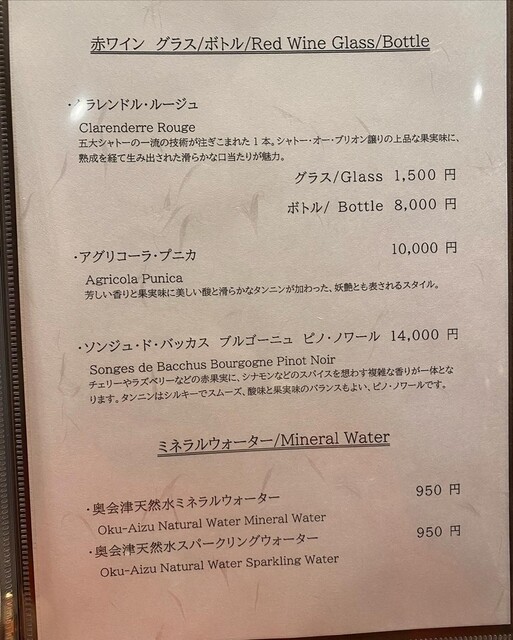 赤ワイン グラス/ボトル/Red Wine Glass/Bottle
・クラレンドル・ルージュ
Clarenderre Rouge
五大シャトーの一流の技術が注ぎこまれた1本。シャトー・オー・ブリオン譲りの上品な果実味に、
熟成を経て生み出された滑らかな口当たりが魅力。
グラス/Glass 1,500 円
ボトル/ Bottle 8,000 円
・アグリコーラ・プニカ 10,000 円
Agricola Punica
芳しい香りと果実味に美しい酸と滑らかなタンニンが加わった、妖艶とも表されるスタイル。
・ソンジュ・ド・バッカス ブルゴーニュ ピノ・ノワール 14,000 円
Songes de Bacchus Bourgogne Pinot Noir
チェリーやラズベリーなどの赤果実に、シナモンなどのスパイスを想わす複雑な香りが一体とな
ります。タンニンはシルキーでスムーズ、酸味と果実味のバランスもよい、ピノ・ノワールです。
ミネラルウォーター/Mineral Water
・奥会津天然水ミネラルウォーター 950 円
Oku-Aizu Natural Water Mineral Water
・奥会津天然水スパークリングウォーター 950 円
Oku-Aizu Natural Water Sparkling Water